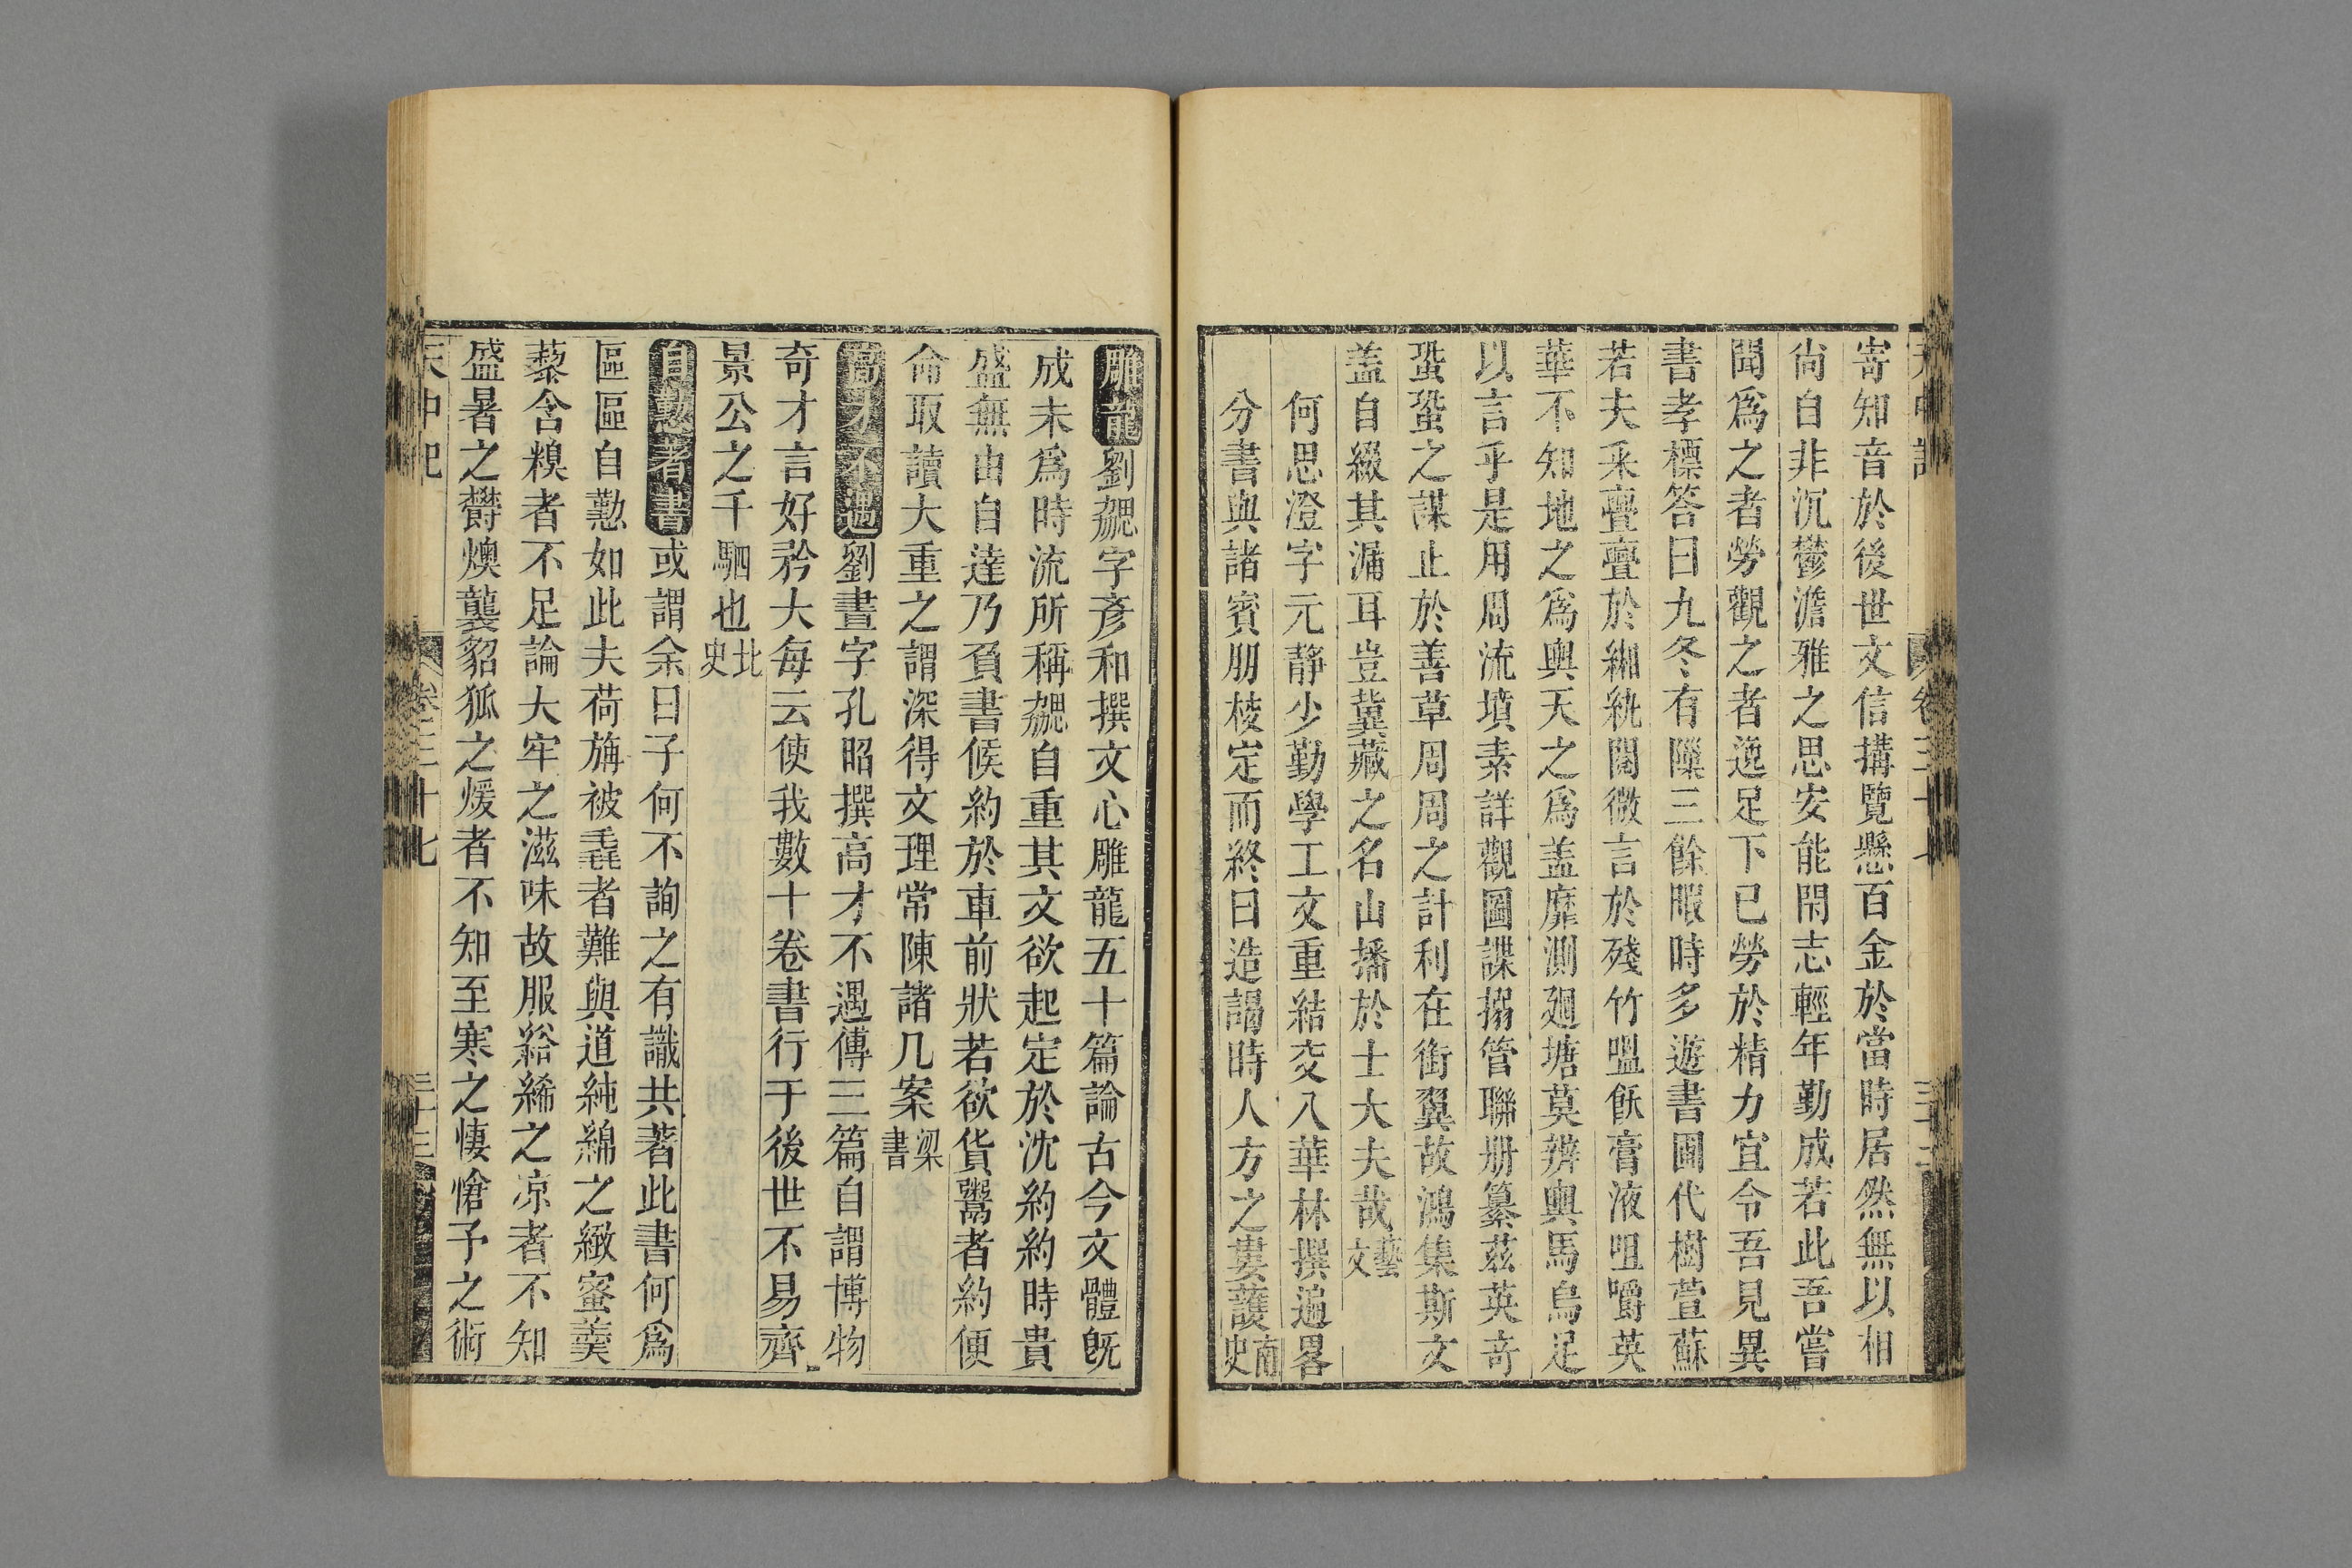 寄知音於後世文信搆覽懸百金於當時居然無以相
尚自非沉鬱澹雅之思安能閉志輕年勤成若此吾嘗
聞爲之者勞觀之者逸足下已勞於精力宜令吾見異
書孝標答曰九冬有隟三餘暇時多遊書圃代樹萱蘇
若夫采亹亹於緗紈閱微言於殘竹嗢飫膏液咀嚼英
華不知地之爲輿天之爲盖靡測迴塘莫辨輿馬烏足
以言乎是用周流墳素詳觀圖諜搦管聯册纂茲英奇
蛩蛩之謀止於善草周周之計利在銜翼故鴻集斯文
盖自綴其漏耳豈冀藏之名山播於士大夫哉藝文
何思澄字元靜少勤學工文重結交入華林撰遍畧
分書與諸賓朋校定而終日造謁時人方之婁護南史
雕龍劉勰字彥和撰文心雕龍五十篇論古今文體旣
成未爲時流所稱勰自重其文欲起定於沈約約時貴
盛無由自達乃負書候約於車前狀若欲貨鬻者約便
命取讀大重之謂深得文理常陳諸几案梁書
高才不遇劉晝字孔昭撰高才不遇傳三篇自謂博物
奇才言好矜大每云使我數十卷書行于後世不易齊
景公之千駟也北史
自懃著書或謂余曰子何不詢之有識共著此書何爲
區區自懃如此夫荷旃被毳者難與道純綿之緻蜜羹
藜含糗者不足論大牢之滋味故服絺綌之凉者不知
盛暑之欝燠襲貂狐之煖者不知至寒之悽愴予之術
天中記 卷三十七